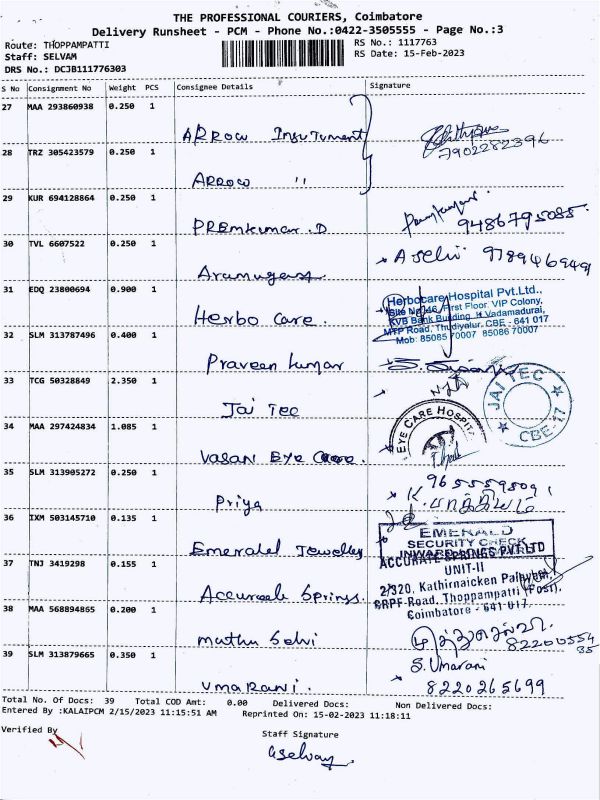 THE PROFESSIONAL COURIERS, Coimbatore
Delivery Runsheet - PCM - Phone No.:0422-3505555 - Page No.:3
Route: THOPPAMPATTI
RS No.: 1117763
Staff: SELVAM
RS Date: 15-Feb-2023
DRS No.: DCJB111776303
S No Consignment No Weight PCS Consignee Details Signature
27 MAA 293860938 0.250 1
ARROW Insutument
7902282396
28 TRZ 305423579 0.250 1
ARROW "
29 KUR 694128864 0.250 1
PREMKUMAR.D
9486795085
30 TVL 6607522 0.250 1
A selvi 978946949
31 EDQ 23800694 0.900 1
Herbo Care.
Herbocare Hospital Pvt.Ltd.,
Site No.46, First Floor, VIP Colony,
KVB Bank Building, Vadamadurai,
MTP Road, Thudiyalur, CBE - 641 017
Mob: 85085 70007 85086 70007
32 SLM 313787496 0.400 1
Praveen kumar
33 TCG 50328849 2.350 1
Jai Tec
JAI TEC
CBE-17
34 MAA 297424834 1.085 1
Vasan Eye Care.
EYE CARE HOSPIT
35 SLM 313905272 0.250 1
Priya
9655595091
36 IXM 503145710 0.135 1
Emerald Jewelley
EMERALD
SECURITY CHECK
INWARD
37 TNJ 3419298 0.155 1
Accurate Springs.
ACCURATE SPRINGS PVT LTD
UNIT-II
2/320, Kathirnaicken Palayam,
CRPF Road, Thoppampatti (Post),
Coimbatore - 641 017.
38 MAA 568894865 0.200 1
muthu Selvi
முத்துசெல்வி
39 SLM 313879665 0.350 1
UmaRani.
S. Umarani
8220265699
Total No. Of Docs: 39 Total COD Amt: 0.00 Delivered Docs: Non Delivered Docs:
Entered By :KALAIPCM 2/15/2023 11:15:51 AM Reprinted On: 15-02-2023 11:18:11
Verified By
Staff Signature